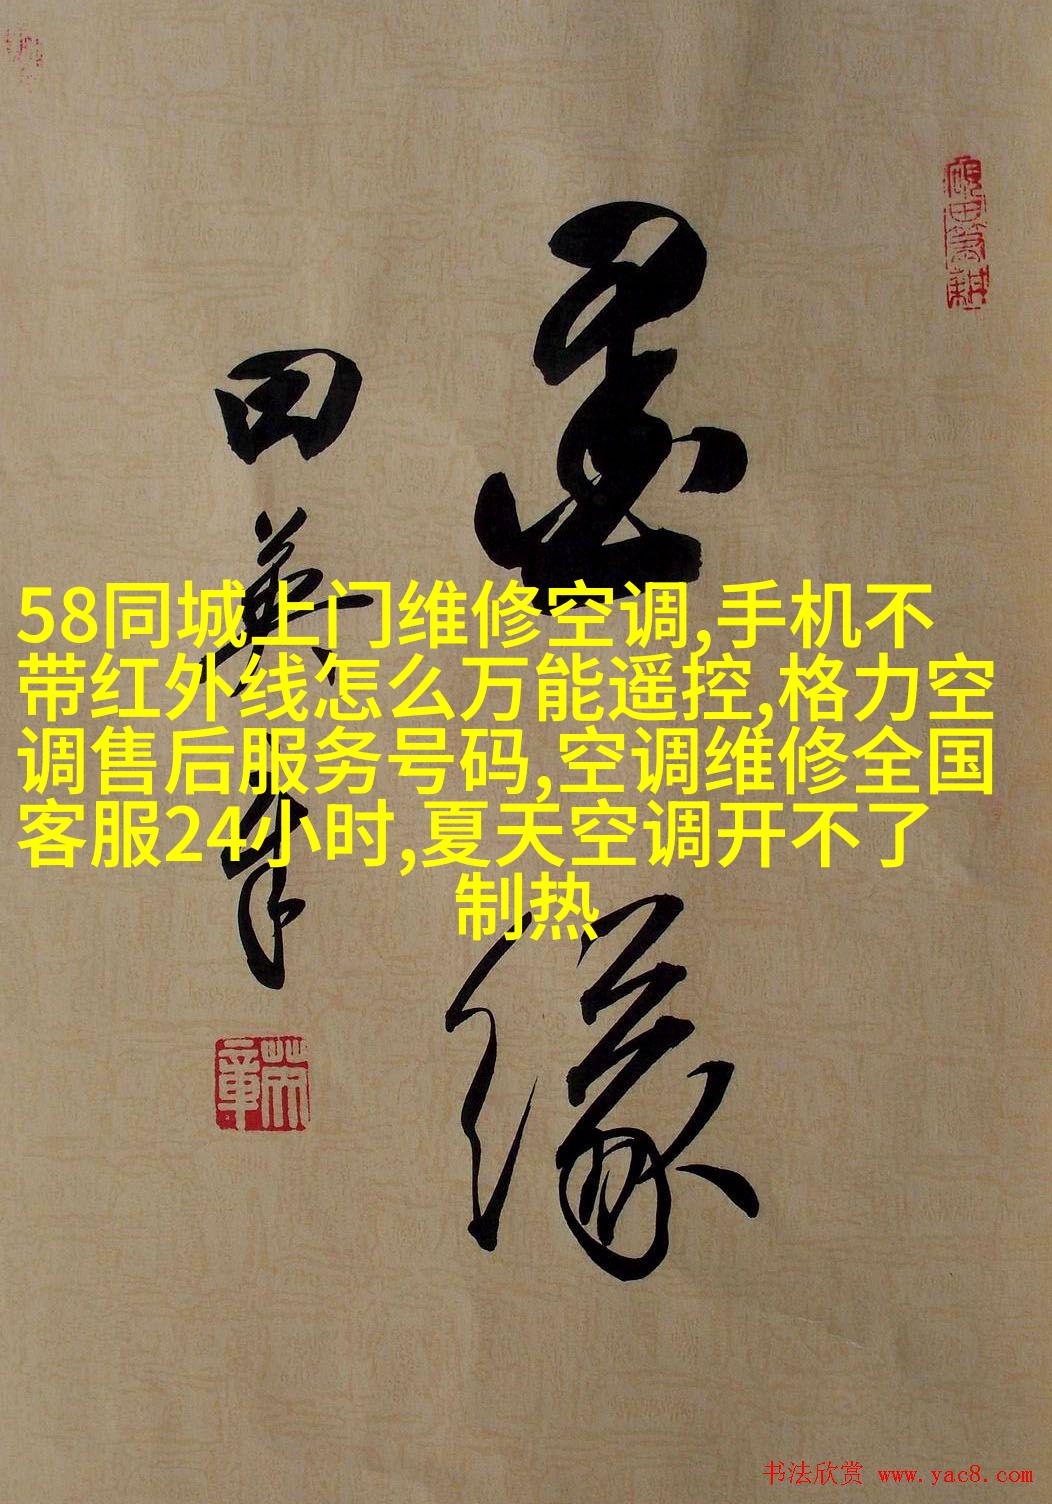 墨
缘
田英章
58同城上门维修空调,手机不
带红外线怎么万能遥控,格力空
调售后服务号码,空调维修全国
客服24小时,夏天空调开不了
制热
书法欣赏 www.yac8.com